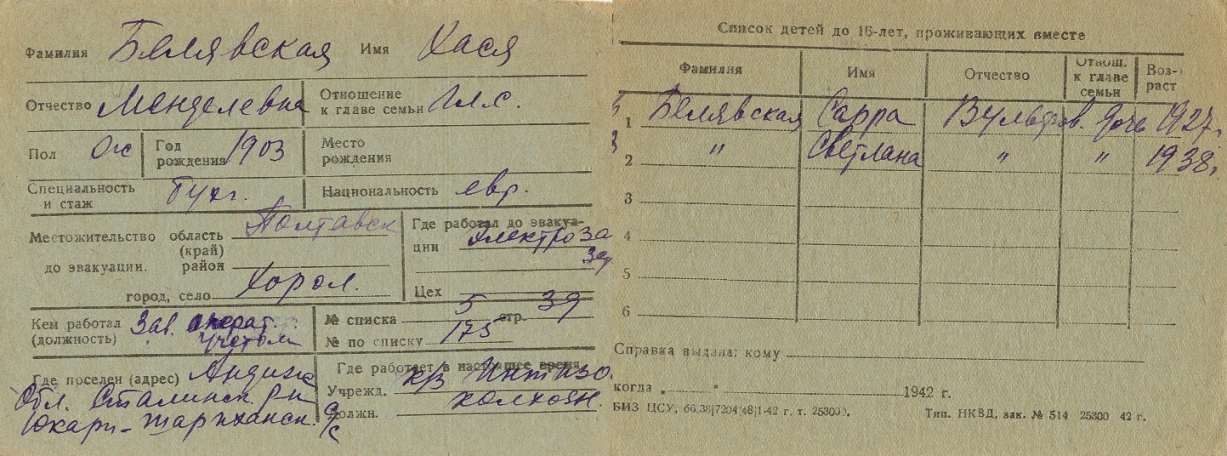 Фамилия Белявская Имя Хася
Отчество Менделевна Отношение к главе семьи Гл.с.
Пол Ж Год рождения 1903 Место рождения
Специальность и стаж бухг. Национальность евр.
Местожительство до эвакуации. область (край) Полтавск
район
город, село Хорол.
Где работал до эвакуации Электроза
Цех
Кем работал (должность) Зав. операт. учетом
№ списка 5 стр. 39
№ по списку 175
Где поселен (адрес) Андиж
Обл. Сталинск. р-н
Юкари-Шариханск. с/с
Где работает в настоящее время
Учрежд. к/з Интизо.
Должн. колхозн.
Список детей до 16-лет, проживающих вместе
Фамилия Имя Отчество Отнош. к главе семьи Возраст
1 Белявская Сарра Вульфов. дочь 1927г.
2 " Светлана " " 1938г.
3
4
5
6
Справка выдана: кому
когда „ " 1942 г.
БИЗ ЦСУ, 66.38|7204|48|1-42 г. т. 25300. Тип. НКВД, зак. № 514 25300 42 г.